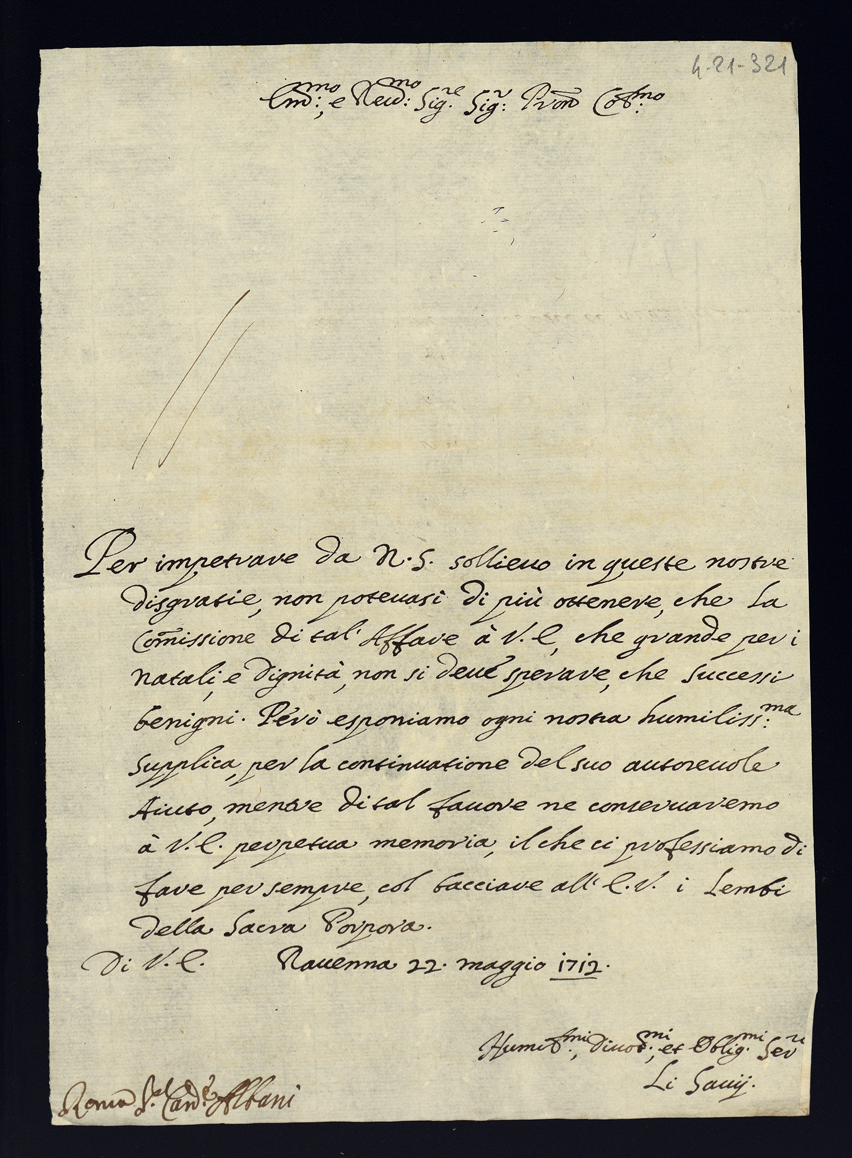 4-21-321
Em:mo, e Reu:mo Sig.re Sig:r Pron Col:mo
Per impetrare da N. S. sollieuo in queste nostre
disgratie, non poteuasi di più ottenere, che la
Comissione di tal' Affare à V. E, che grande per i
natali, e dignità, non si deue sperare, che successi
benigni. Però esponiamo ogni nostra humiliss:ma
supplica, per la continuatione del suo autoreuole
Aiuto, mentre di tal fauore ne conseruaremo
à V. E. perpetua memoria, il che ci professiamo di
fare per sempre, col bacciare all' E. V. i Lembi
della Sacra Porpora.
Di V. E. Rauenna 22. maggio 1712.
Humil:mi, Diuot:mi, et Oblig:mi Ser.ri
Li Sauij.
Roma S.r Card.e Albani